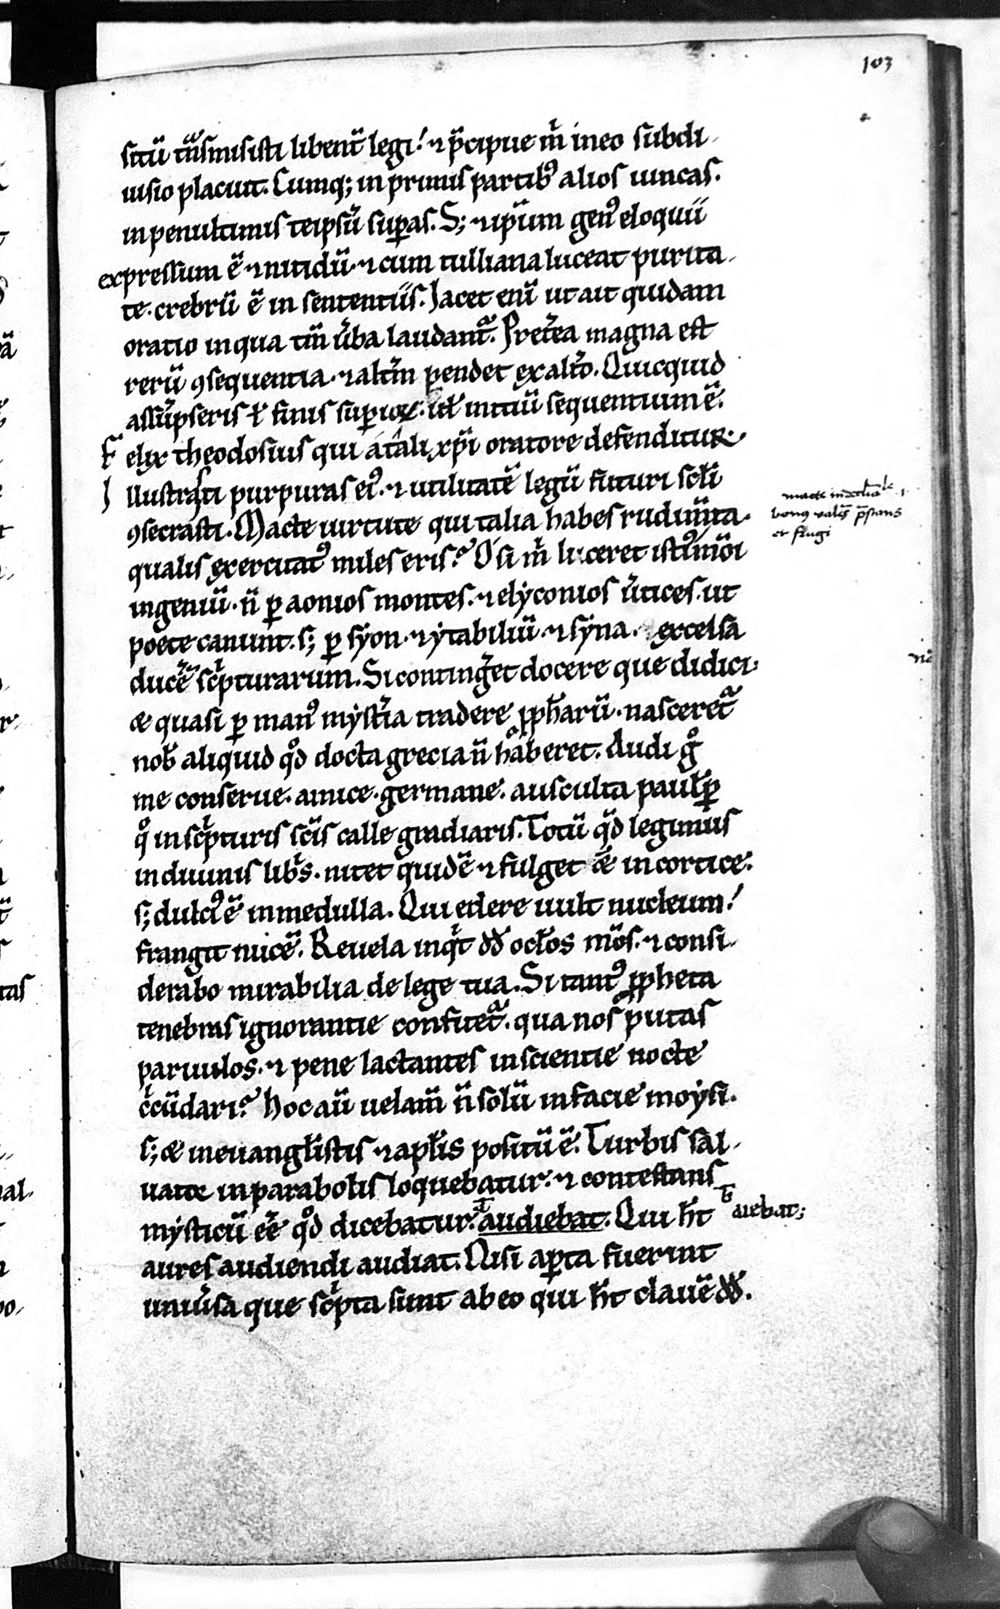 103
sitū t̄nsmisisti libent̄ legi! ⁊ p̄cipue m̄ in eo subdi-
uisio placuit. Cumq; in primis partib⁹ alios uincas.
in penultimis teipsū suꝑas. S; ⁊ ip̄um gen⁹ eloquii
expressum ē ⁊ nitidū ⁊ cum tulliana luceat purita-
te. crebrū ē in sententiis. Iacet enī ut ait quidam
oratio in qua tm̄ ūba laudant̄. Pret̄ea magna est
rerū ꝯsequentia ⁊ alt̄m pendet ex alt̄o. Quicquid
assūpseris ł finis supioꝝ. ul̄ initiū sequentium ē.
Felix theodosius qui a tali xp̄i oratore defenditur.
Illustrasti purpuras ei⁹. ⁊ utilitatē legū futuri sc̄li
ꝯsecrasti. Macte uirtute qui talia habes rudim̄ta.
qualis exercitat⁹ miles eris? O si m̄ liceret isti⁹modi
ingeniū. n̄ ꝑ aonios montes. ⁊ elyconios ūtices. ut
poete canunt. s; ꝑ syon ⁊ ytabiliū ⁊ syna excelsa
ducē sc̄pturarum. Si continḡet docere que didici.
⁊ quasi ꝑ man⁹ myst̄ia tradere ꝓph̄arū. nasceret̄
nob̄ aliquid qd̄ docta grecia n̄ haberet. Audi g̊
me conserue. amice. germane. ausculta paulꝑ
q̊ in sc̄pturis sc̄is calle gradiaris. Totū qd̄ legimus
in diuinis lib̄s. nitet quidē ⁊ fulget ē in cortice.
s; dulci⁹ ē in medulla. Qui edere uult nucleum!
frangit nucē. Reuela inq̄t dd̄ ocl̄os m̄os. ⁊ consi-
derabo mirabilia de lege tua. Si tant⁹ ꝓpheta
tenebras ignorantie confitet̄. qua nos putas
paruulos. ⁊ pene lactantes inscientie nocte
c̄cūdari? Hoc aū uelam̄ n̄ solū in facie moysi.
s; ⁊ in euangl̄istis ⁊ apl̄is positū ē. Turbis sal-
uator in parabolis loquebatur. ⁊ contestans
mysticū eē qd̄ dicebatur. audiebat. Qui h̄t diebat;
aures audiendi audiat. Nisi aꝑta fuerint
uniūsa que sc̄pta sunt ab eo qui h̄t clauē dd̄.
bonus valēs p̄stans
et frugi